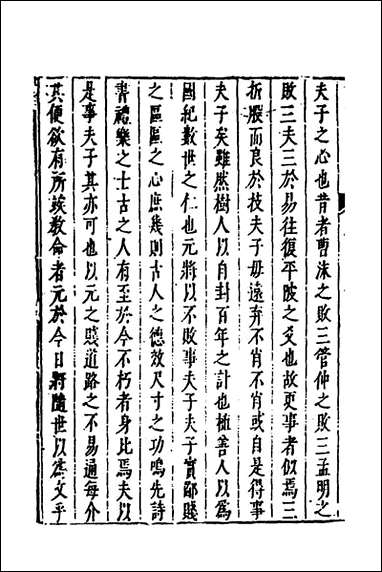 夫子之心也昔者曹沫之敗三管仲之敗三孟明之
敗三夫三於易往復平陂之爻也故更事者似焉三
折股而良於技夫子毋遠弃不肖不肖或自是得事
夫子矣雖然樹人以自封百年之計也植善人以爲
國紀數世之仁也元將以不敗事夫子夫子實鄙賤
之區區之心庶幾則古人之德效尺寸之功鳴先詩
書禮樂之士古之人有至於今不朽者身比焉夫以
是事夫子其亦可也以元之賤道路之不易遍每介
其便欲有所該教命者元於今日將隨世以爲文乎